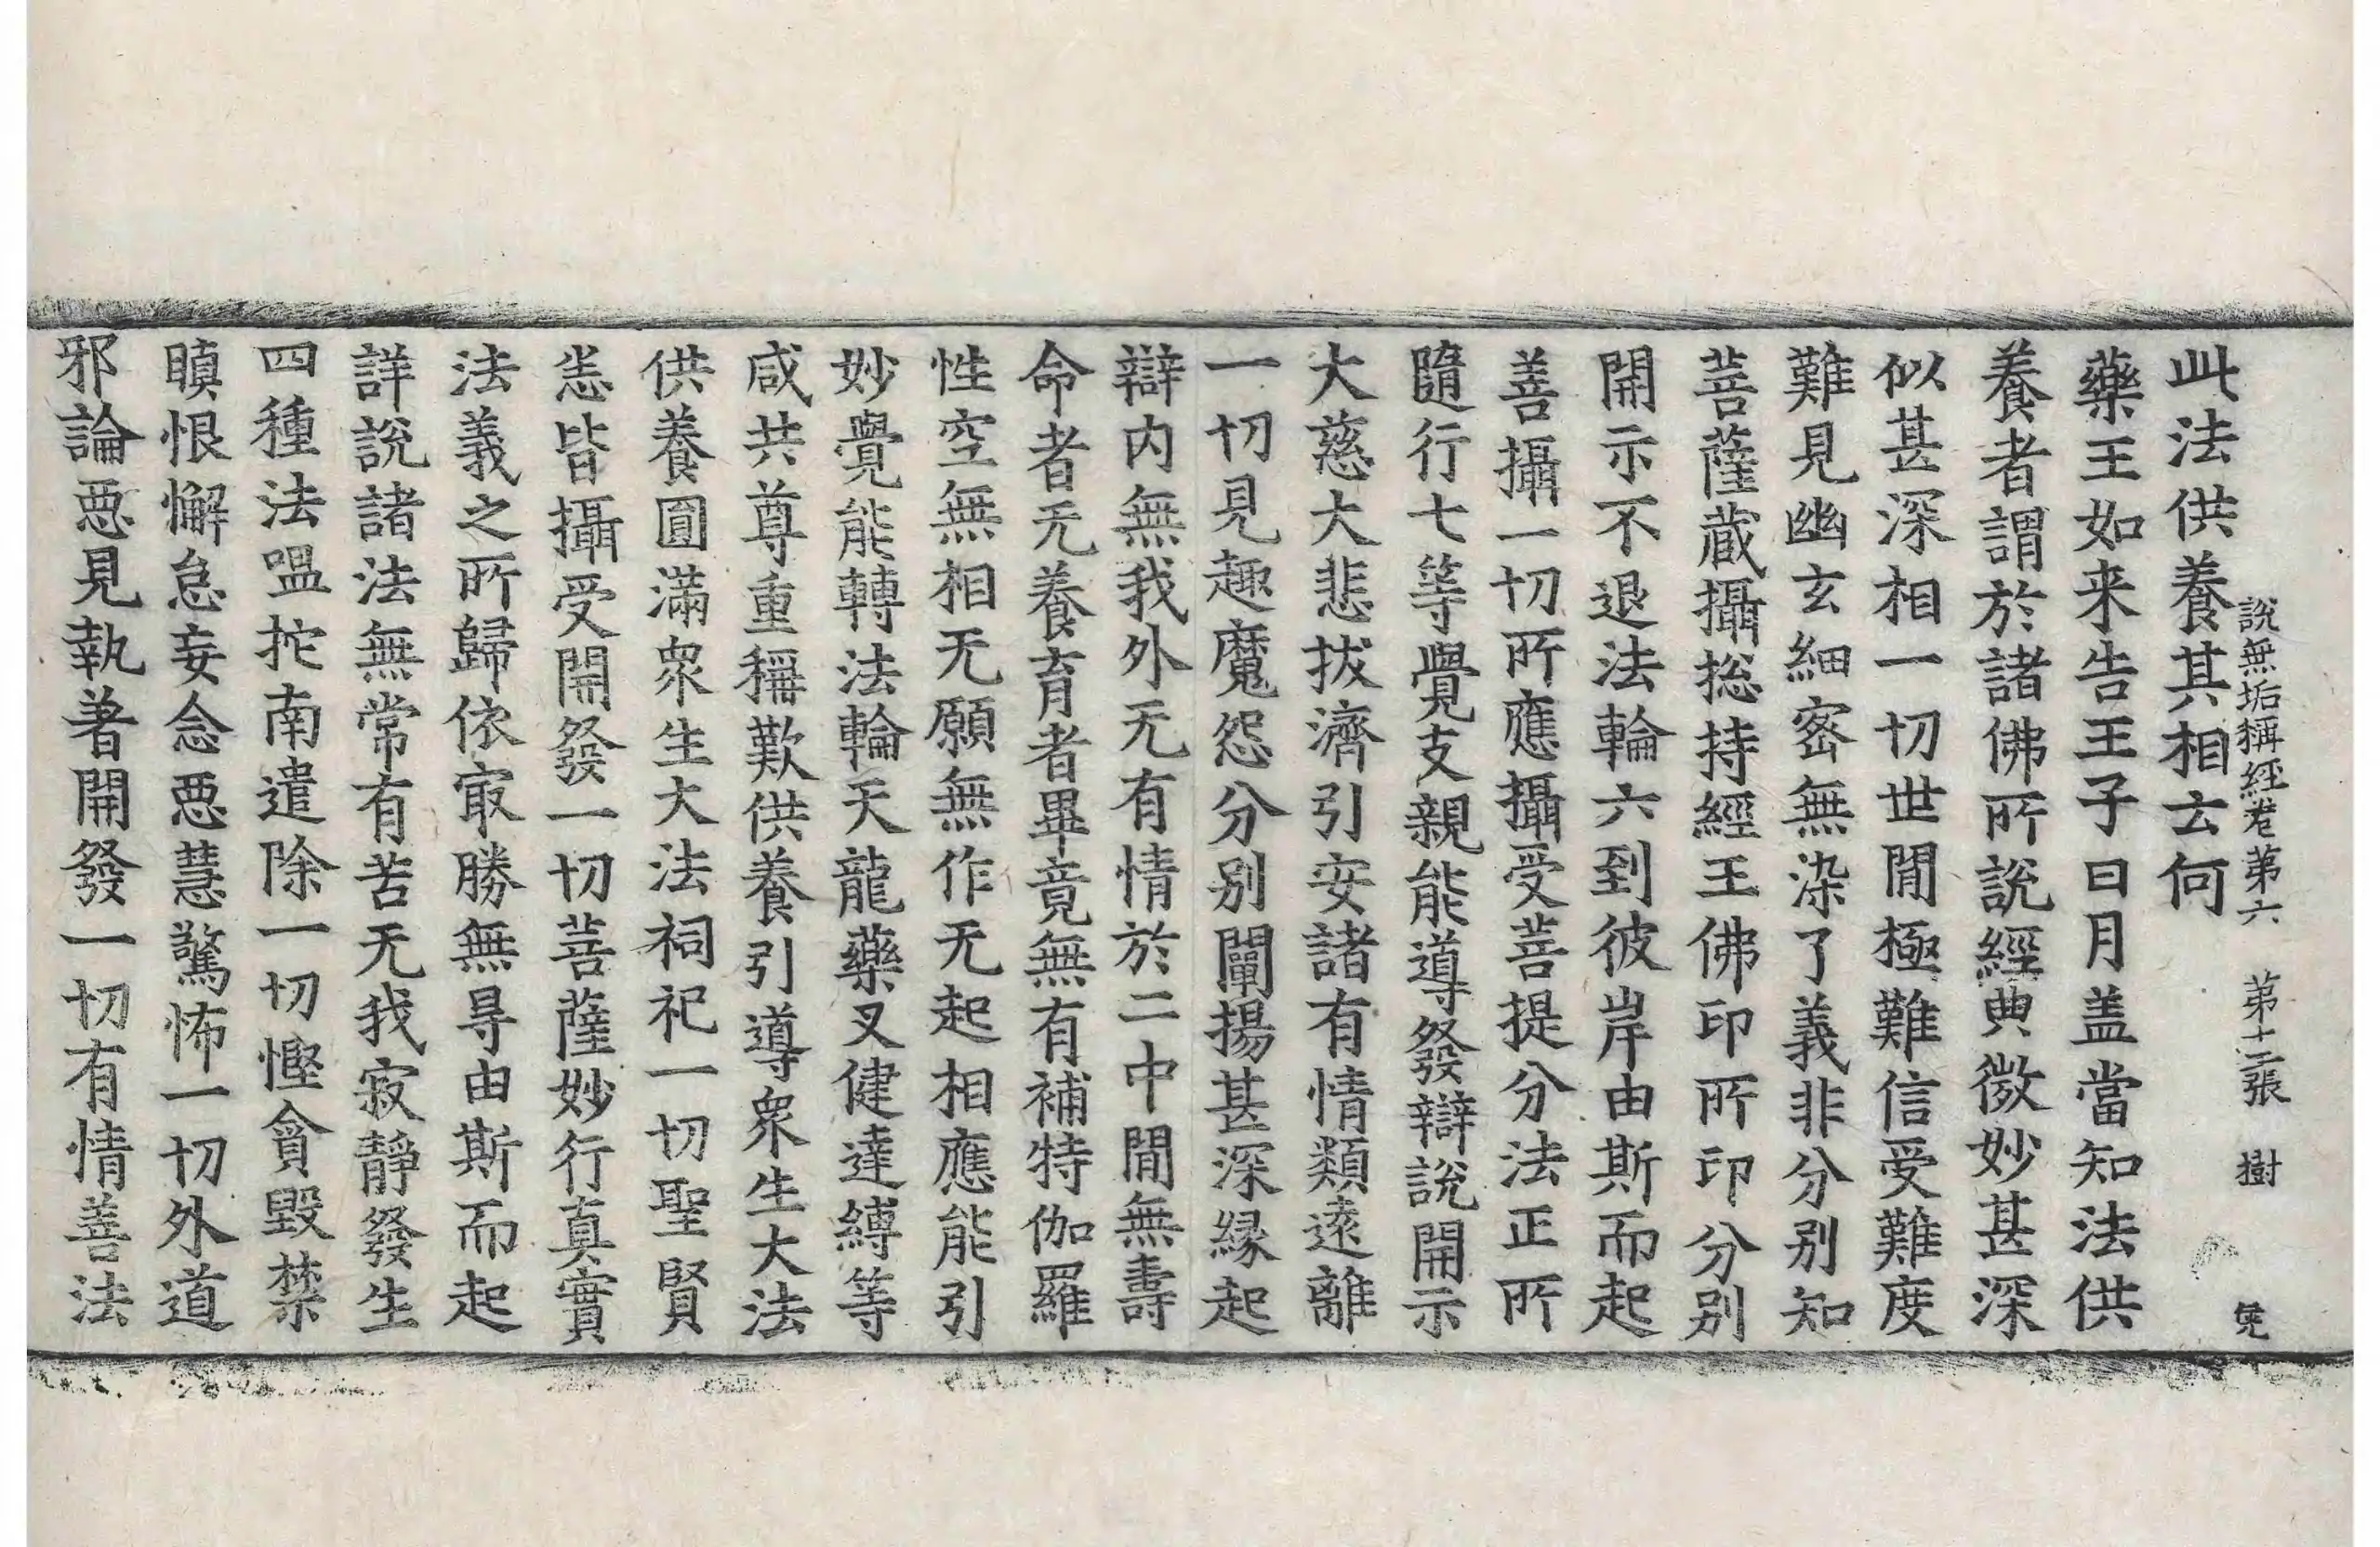 說無垢稱經卷第六 第十二張 樹
此法供養其相云何
藥王如来告王子曰月盖當知法供
養者謂於諸佛所說經典微妙甚深
似甚深相一切世閒極難信受難度
難見幽玄細密無染了義非分別知
菩薩蔵攝揔持經王佛印所印分別
開示不退法輪六到彼岸由斯而起
善攝一切所應攝受菩提分法正所
隨行七等覺支親能導發辯說開示
大慈大悲拔濟引安諸有情類遠離
一切見趣魔怨分別闡揚甚深縁起
辯内無我外无有情於二中閒無壽
命者无養育者畢竟無有補特伽羅
性空無相无願無作无起相應能引
妙覺能轉法輪天龍藥叉健達縛等
咸共尊重稱歎供養引導衆生大法
供養圎滿衆生大法祠祀一切聖賢
悉皆攝受開發一切菩薩妙行真實
法義之所歸依㝡勝無㝵由斯而起
詳說諸法無常有苦无我寂靜發生
四種法嗢拕南遣除一切慳貪毀禁
瞋恨懈怠妄念惡慧驚怖一切外道
邪論惡見執著開發一切有情善法